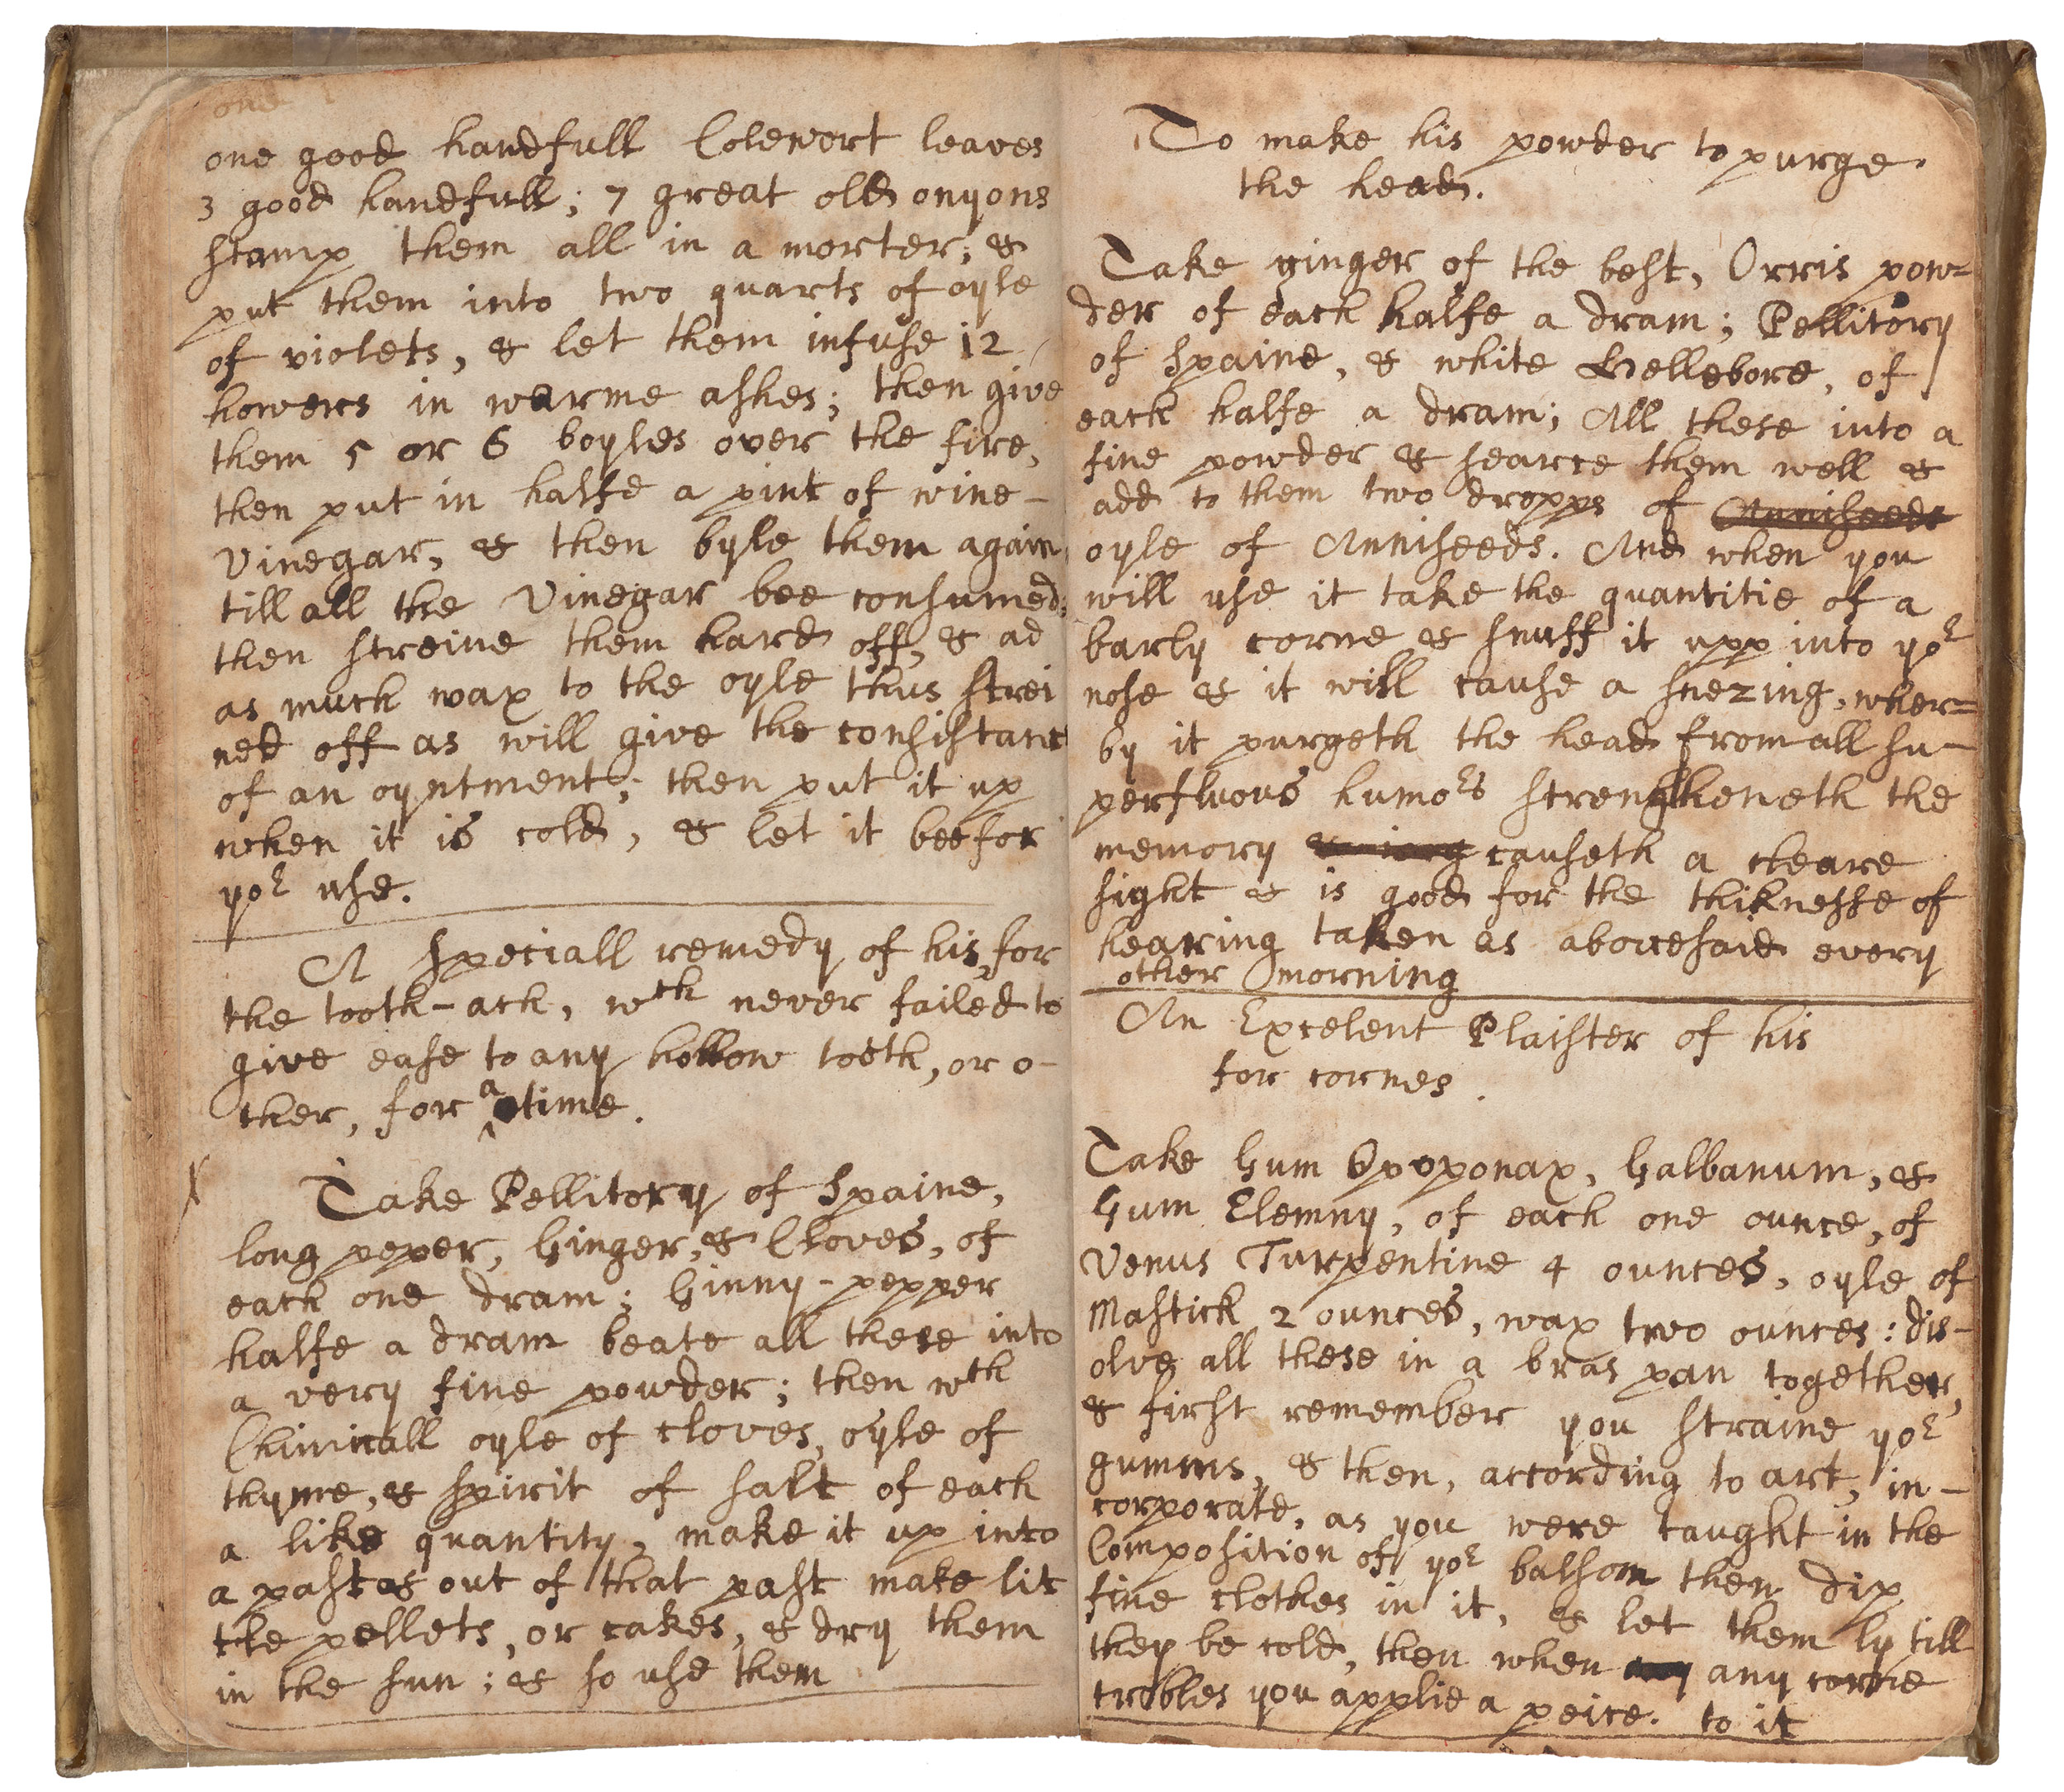 one
one good handfull Colewort leaves
3 good handfull; 7 great old onyons
stamp them all in a morter; &
put them into two quarts of oyle
of violets, & let them infuse 12
howers in warme ashes; then give
them 5 or 6 boyles over the fire,
then put in halfe a pint of wine-
Vinegar, & then byle them again
till all the Vinegar bee consumed;
then streine them hard off, & ad
as much wax to the oyle thus strei
ned off as will give the consistanc
of an oyntment; then put it up
when it is cold, & let it bee for
yor use.
A speciall remedy of his for
the tooth-ach, wch never failed to
give ease to any hollow tooth, or o-
ther, for a time.
x
Take Pellitory of Spaine,
long peper, Ginger, & Cloves, of
each one dram; Ginny-pepper
halfe a dram beate all these into
a very fine powder; then wth
Chimicall oyle of cloves, oyle of
thyme, & spirit of salt of each
a like quantity, make it up into
a past & out of that past make lit
tle pellets, or cakes, & dry them
in the sun; & so use them
To make his powder to purge
the head.
Take ginger of the best, Orris pow=
der of each halfe a dram; Pellitory
of Spaine, & white Hellebore, of
each halfe a dram; All these into a
fine powder & searce them well &
add to them two dropps of Anniseeds
oyle of Anniseeds. And when you
will use it take the quantitie of a
barly corne & snuff it upp into yor
nose & it will cause a snezing, wher=
by it purgeth the head from all su-
perfluous humors strengtheneth the
memory causeth a cleare
sight & is good for the thiknesse of
hearing taken as abovesaid every
other morning
An Excelent Plaister of his
for cornes.
Take Gum Opoponax, Galbanum, &
Gum Elemny, of each one ounce, of
Venus Turpentine 4 ounces, oyle of
Mastick 2 ounces, wax two ounces: dis-
olve all these in a bras pan together,
& first remember you straine yor
gumms, & then, according to art, in-
corporate, as you were taught in the
Composition of yor balsom then dip
fine clothes in it, & let them ly till
they be cold, then when any any corne
trobles you applie a peice. to it